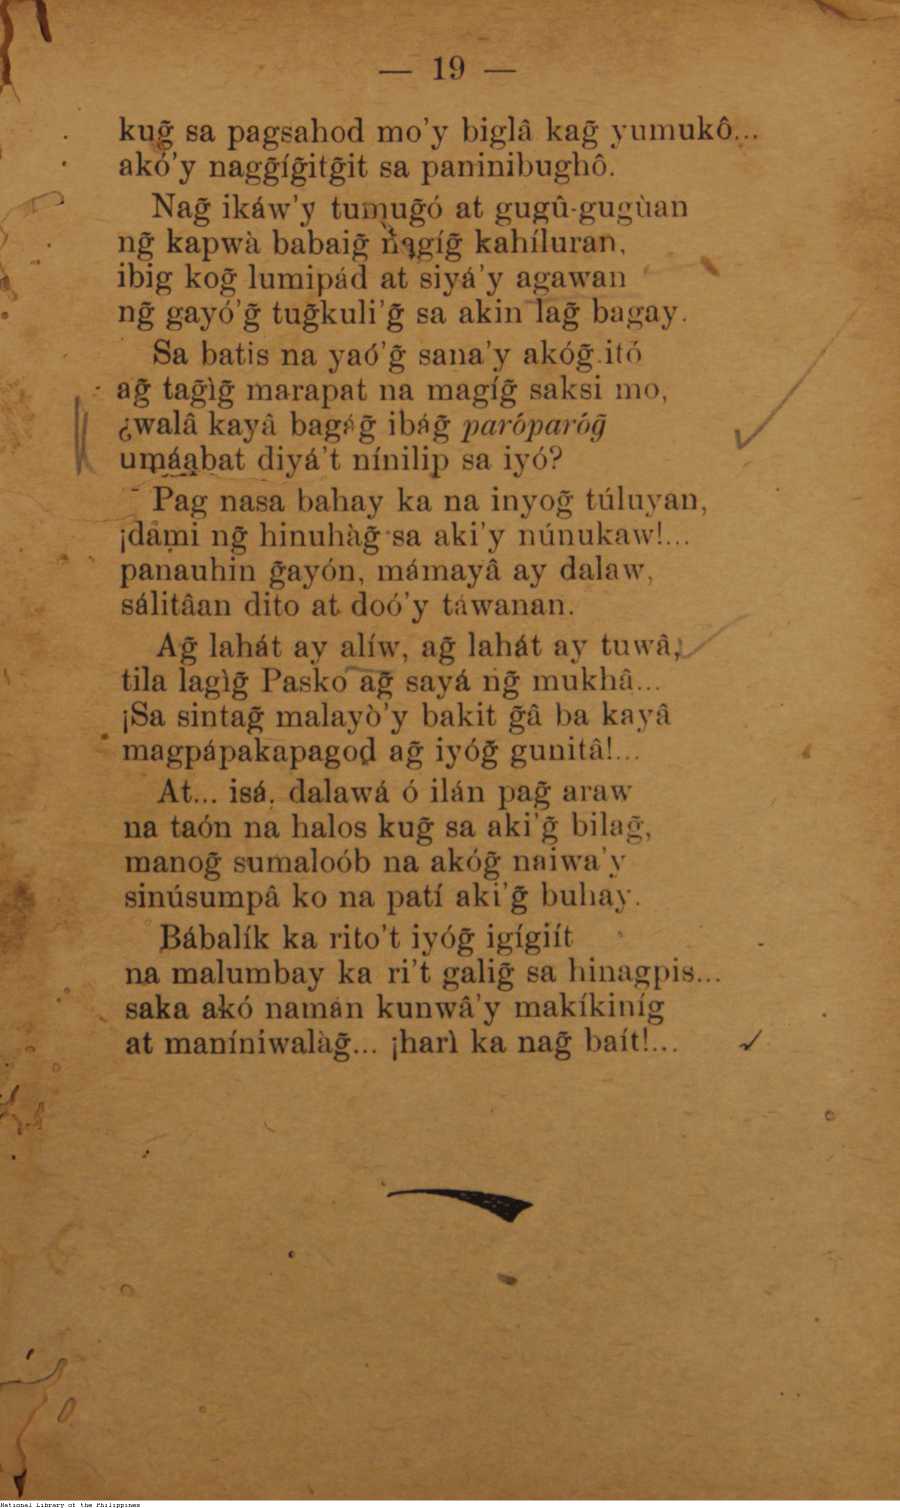 — 19 —
kug̃ sa pagsahod mo’y biglâ kag̃ yumukô...
akó’y nagg̃íg̃itg̃it sa paninibughô.
Nag̃ ikáw’y tumug̃ó at gugû-gugùan
ng̃ kapwà babaig̃ kahíluran,
ibig kog̃ lumipád at siyá’y agawan
ng̃ gayó’g̃ tug̃kuli’g̃ sa akin lag̃ bagay.
Sa batis na yaó’g̃ sana’y akóg̃ itó
ag̃ tag̃ìg̃ marapat na magíg̃ saksi mo,
¿walâ kayâ bagág̃ ibág̃ paróparóg̃
umáabat diyá’t nínilip sa iyó?
Pag nasa bahay ka na inyog̃ túluyan,
¡dami ng̃ hinuhàg̃ sa aki’y núnukaw!...
panauhin g̃ayón, mámayâ ay dalaw,
sálitâan dito at doó’y táwanan.
Ag̃ lahát ay alíw, ag̃ lahát ay tuwâ,
tila lagìg̃ Pasko ag̃ sayá ng̃ mukhâ...
¡Sa sintag̃ malayò’y bakit g̃â ba kayâ
magpápakapagod ag̃ iyóg̃ gunitâ!...
At... isá, dalawá ó ilán pag̃ araw
na taón na halos kug̃ sa aki’g̃ bilag̃,
manog̃ sumaloób na akóg̃ naiwa’y
sinúsumpâ ko na patí aki’g̃ buhay.
Bábalík ka rito’t iyóg̃ igígiít
na malumbay ka ri’t galig̃ sa hinagpis...
saka akó namán kunwâ’y makíkiníg
at maníniwalàg̃... ¡harì ka nag̃ baít!...
National Library of the Philippines